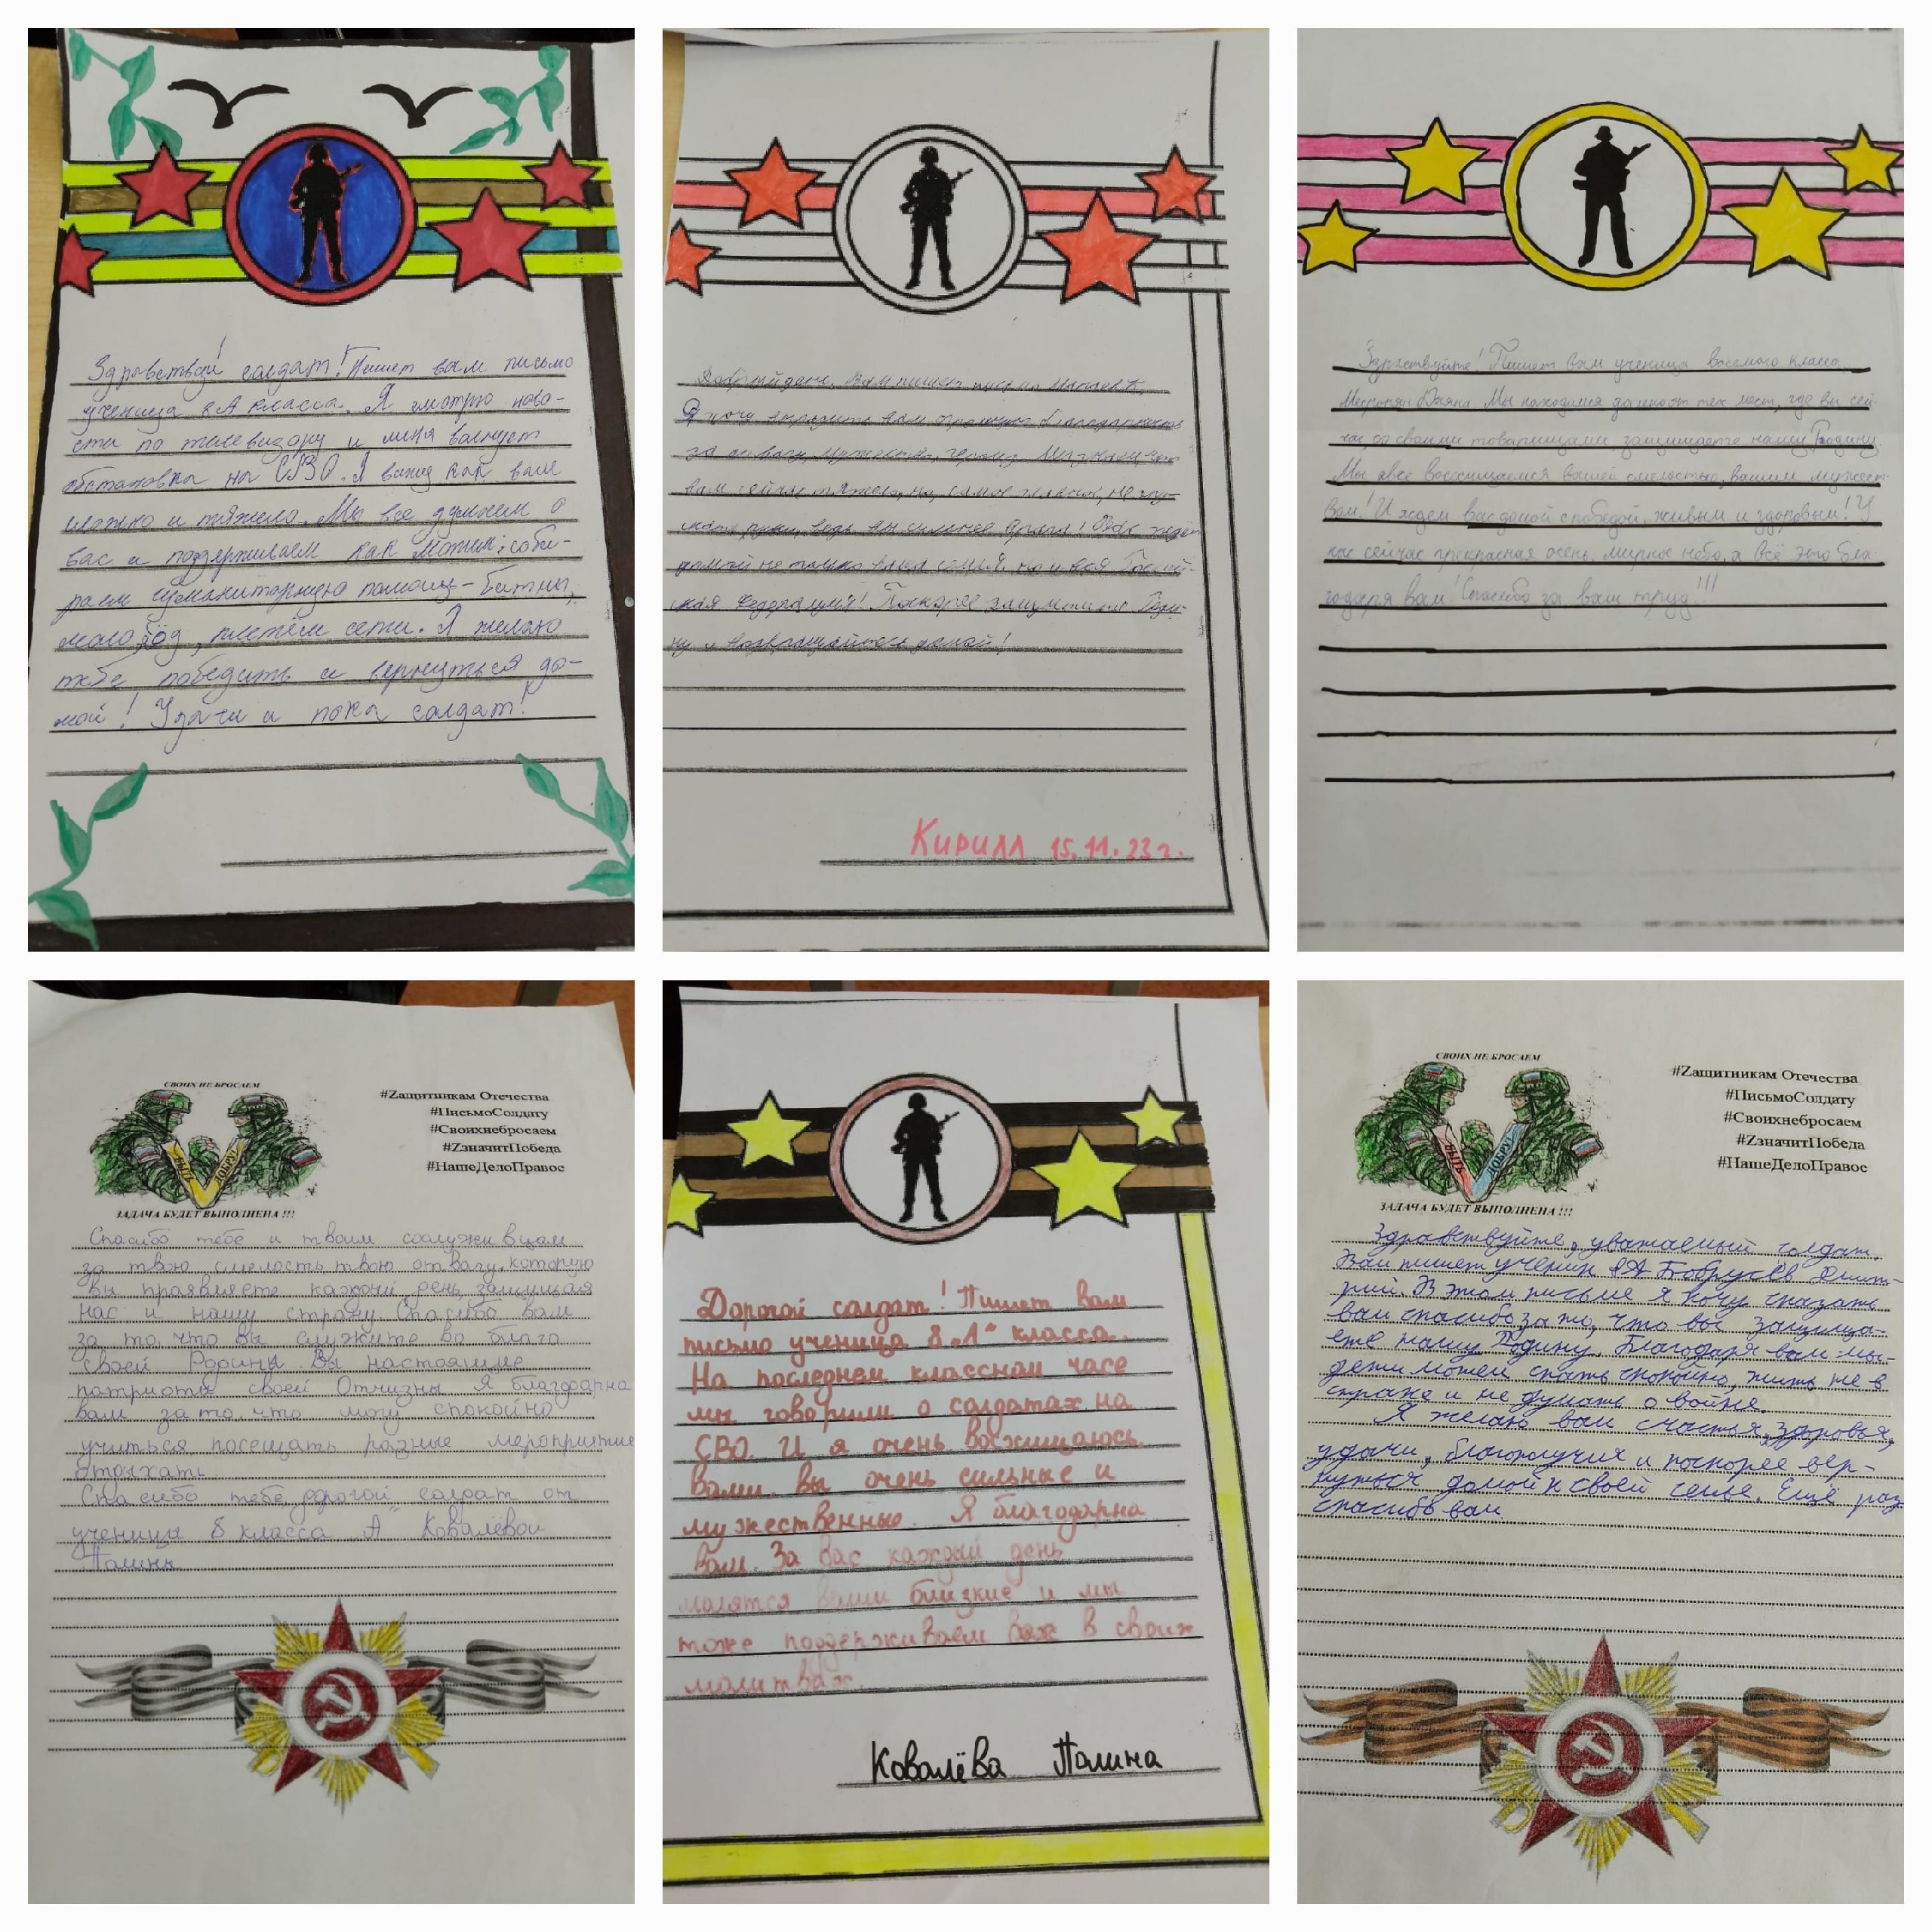 Здравствуй солдат! Пишет вам письмо
ученица 8А класса. Я смотрю ново-
сти по телевизору и меня волнует
обстановка на СВО. Я вижу как вам
сложно и тяжело. Мы все думаем о
вас и поддерживаем как можем: соби-
раем гуманитарную помощь - батны,
плетём сети. Я желаю
тебе победить и вернуться до-
мой! Удачи и пока солдат!
Добрый день. Вам пишет письмо
Я хочу выразить вам огромную благодарность
за отвагу, мужество, героизм.
вам сейчас тяжело, но, самое главное, не опу-
ведь вы сильнее врага! Вас ждёт
домой не только ваша семья, но и вся Россий-
ская Федерация! Поскорее защитите Роди-
ну и возвращайтесь домой!
Кирилл 15.11.23 г.
Здраствуйте! Пишет вам ученица восьмого класса
Диана. Мы находимся далеко от тех мест, где вы сей-
час со своими товарищами защищаете нашу Родину.
Мы все восхищаемся вашей смелостью, вашим мужест-
вом! И ждем вас домой с победой, живым и здоровым! У
нас сейчас прекрасная осень, мирное небо, а всё это бла-
годаря вам! Спасибо за ваш труд!!!
СВОИХ НЕ БРОСАЕМ
#Zащитникам Отечества
#ПисьмоСолдату
#Своихнебросаем
#ZзначитПобеда
#НашеДелоПравое
БЫТЬ ДОБРУ!
ЗАДАЧА БУДЕТ ВЫПОЛНЕНА !!!
Спасибо тебе и твоим сослуживцам
за твою смелость, твою отвагу, которую
вы проявляете каждый день, защищая
нас и нашу страну. Спасибо вам
за то, что вы служите во благо
своей Родины. Вы настоящие
патриоты своей Отчизны. Я благодарна
вам за то, что могу спокойно
учиться посещать разные мероприятие
отдыхать
Спасибо тебе, дорогой солдат от
ученицы 8 класса "А" Ковалёвой
Полины
Дорогой солдат! Пишет вам
письмо ученица 8 „А" класса.
На последнем классном часе
мы говорили о солдатах на
СВО. И я очень восхищаюсь
вами. Вы очень сильные и
мужественные. Я благодарна
вам. За вас каждый день
молятся ваши близкие и мы
тоже поддерживаем вас в своих
молитвах.
Ковалёва Полина
СВОИХ НЕ БРОСАЕМ
#Zащитникам Отечества
#ПисьмоСолдату
#Своихнебросаем
#ZзначитПобеда
#НашеДелоПравое
БЫТЬ ДОБРУ!
ЗАДАЧА БУДЕТ ВЫПОЛНЕНА !!!
Здравствуйте, уважаемый солдат.
Вам пишет ученик 8А Бобрусёв Дмит-
рий. В этом письме я хочу сказать
вам спасибо за то, что вы защища-
ете нашу Родину. Благодаря вам мы-
дети можем спать спокойно, жить не в
страхе и не думать о войне.
Я желаю вам счастья, здоровья,
удачи, благополучия и поскорее вер-
нуться домой к своей семье. Ещё раз
спасибо вам